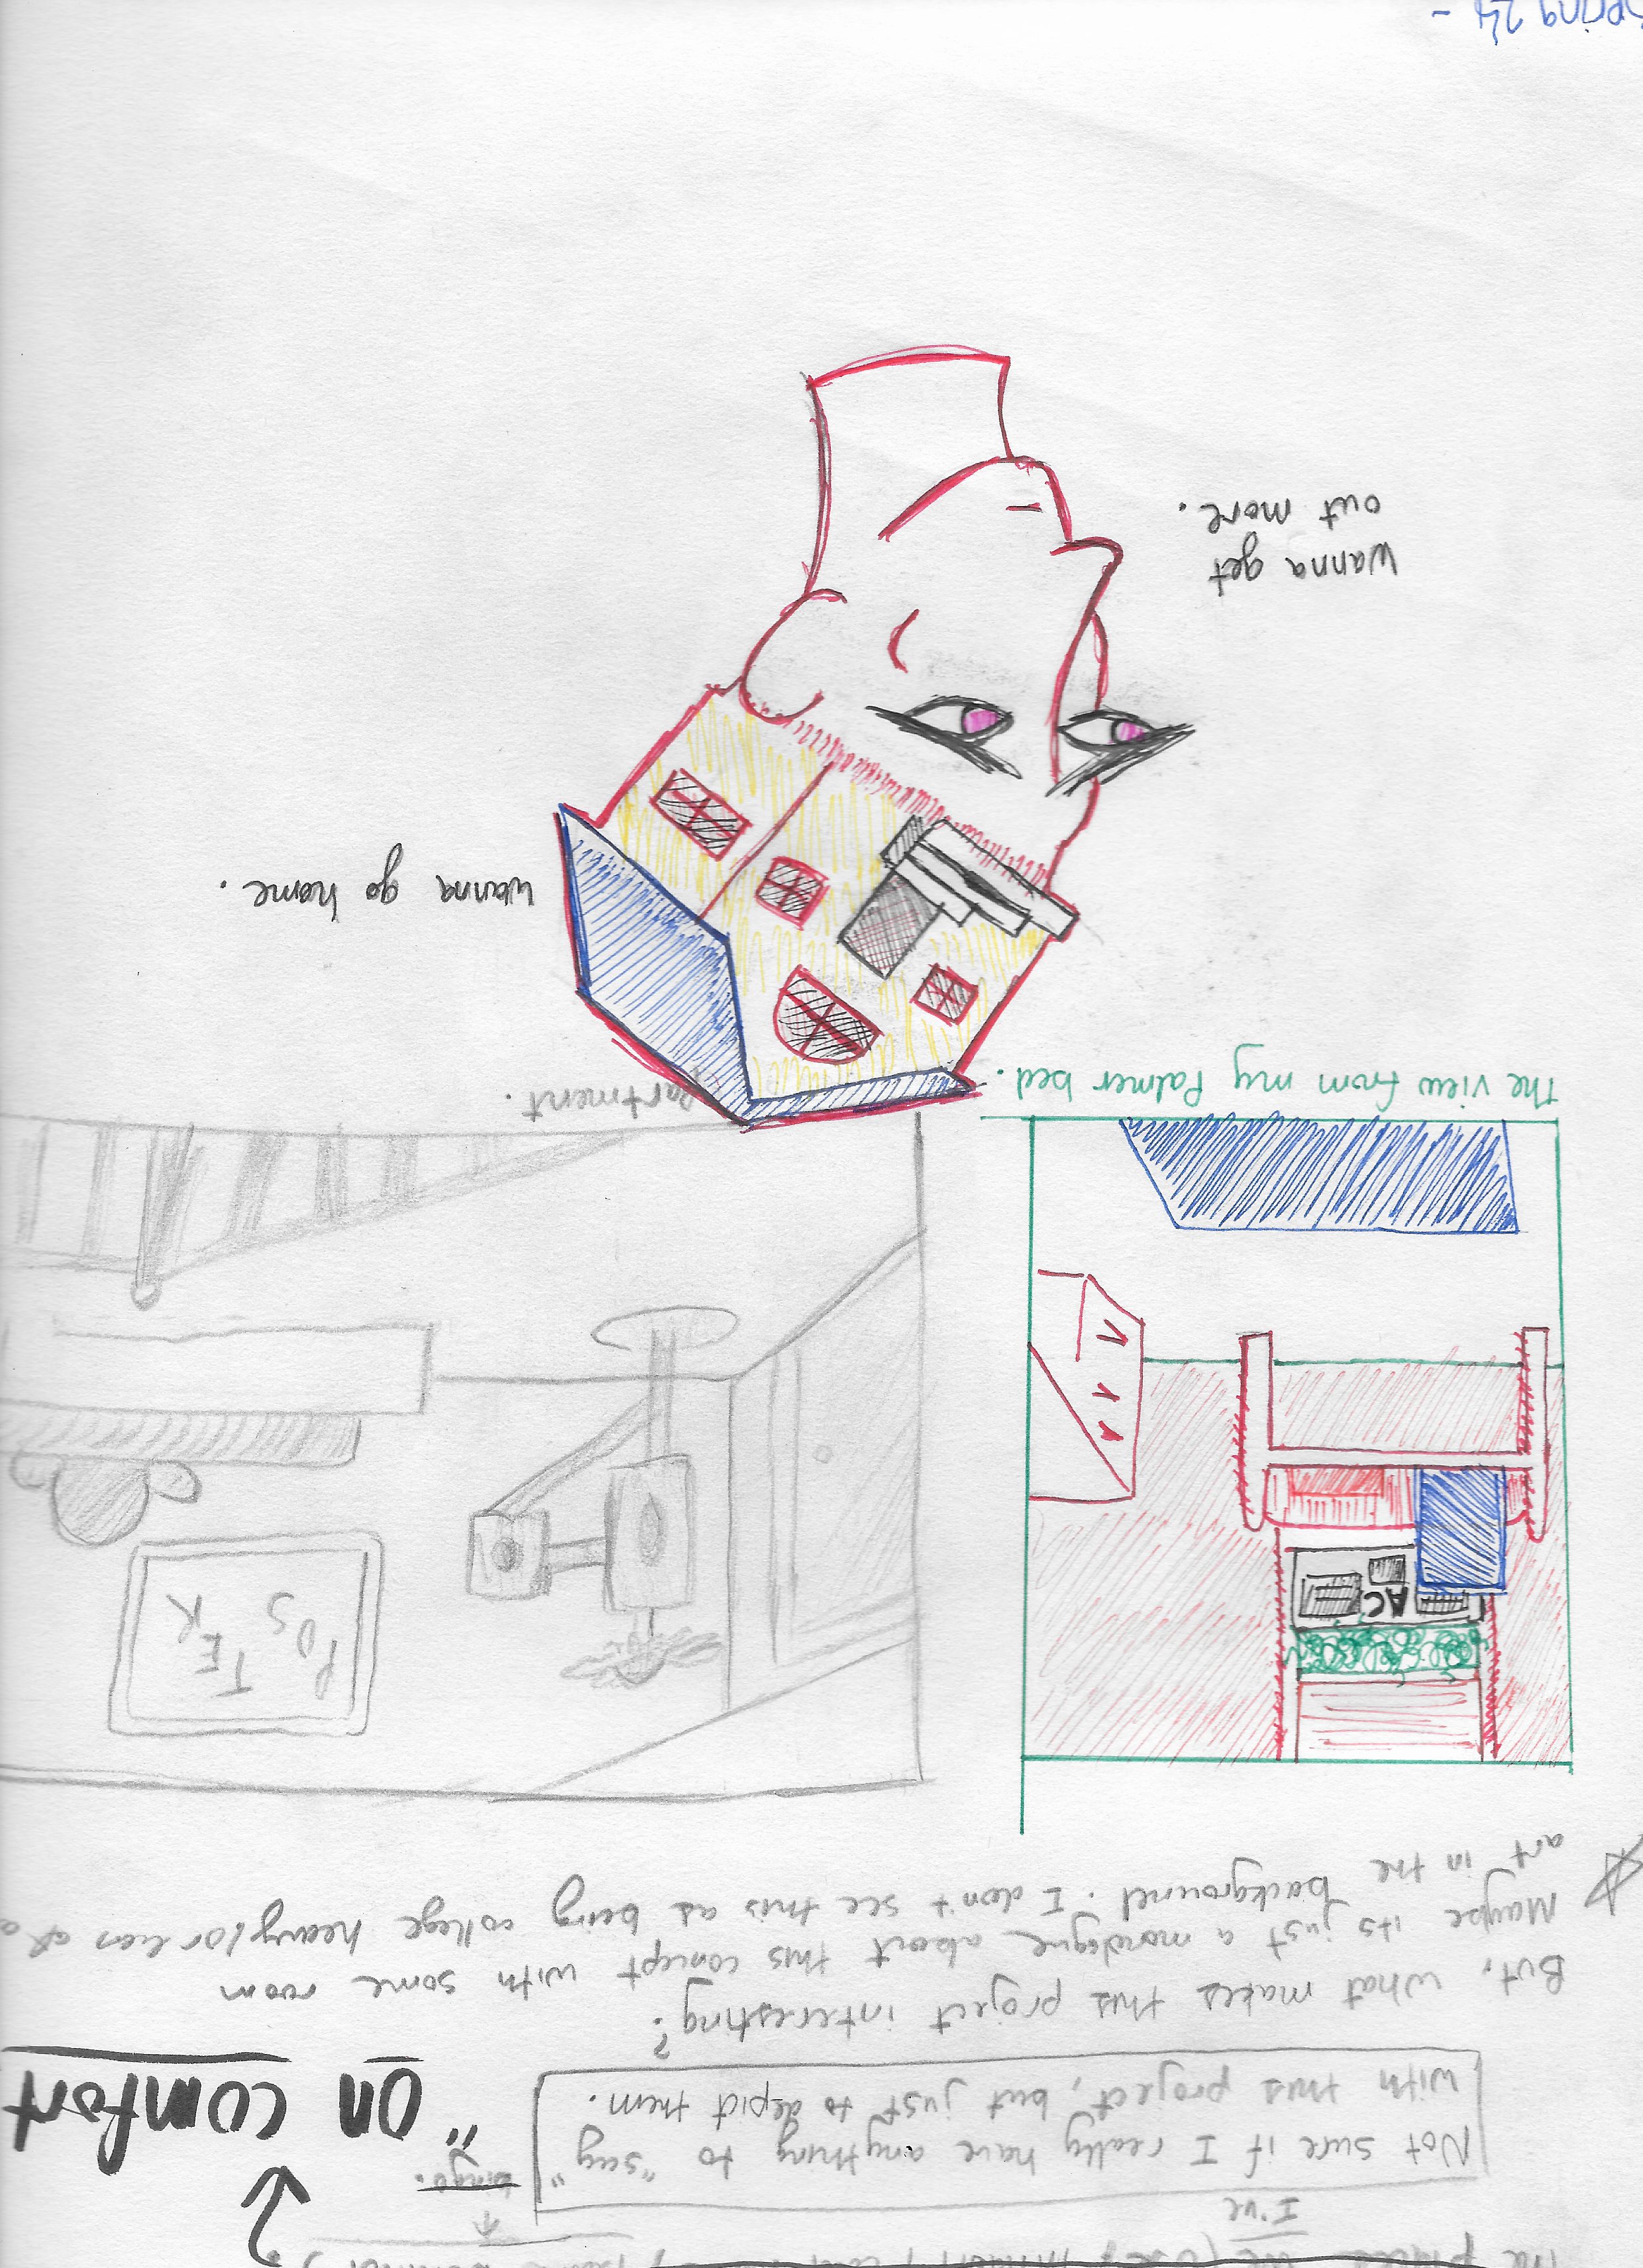 I've
Not sure if I really have anything to "say"
with this project, but just to depict them.
bingo.
"on comfort
But, what makes this project interesting?
Maybe its just a monologue about this concept with some room
art in the background. I don't see this as being college heavy/or
AC
POSTER
The view from my Palmer bed.
partment.
Wanna go home.
Wanna get
out more.
Spring 24 -